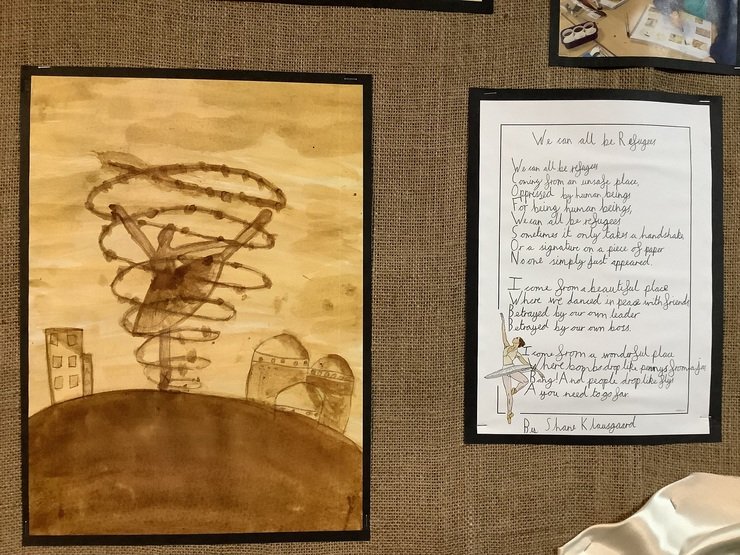 We can all be Refugees
We can all be refugees
Coming from an unsafe place,
Oppressed by human beings
For being human beings,
We can all be refugees
Sometimes it only takes a handshake,
Or a signature on a piece of paper
No one simply just appeared.
I come from a beautiful place
Where we danced in peace with friends
Betrayed by our own leader
Betrayed by our own boss.
I come from a wonderful place
Where bombs drop like pennys from a
Bang! And people drop like flys
A you need to go far
By Shane Klausgaard